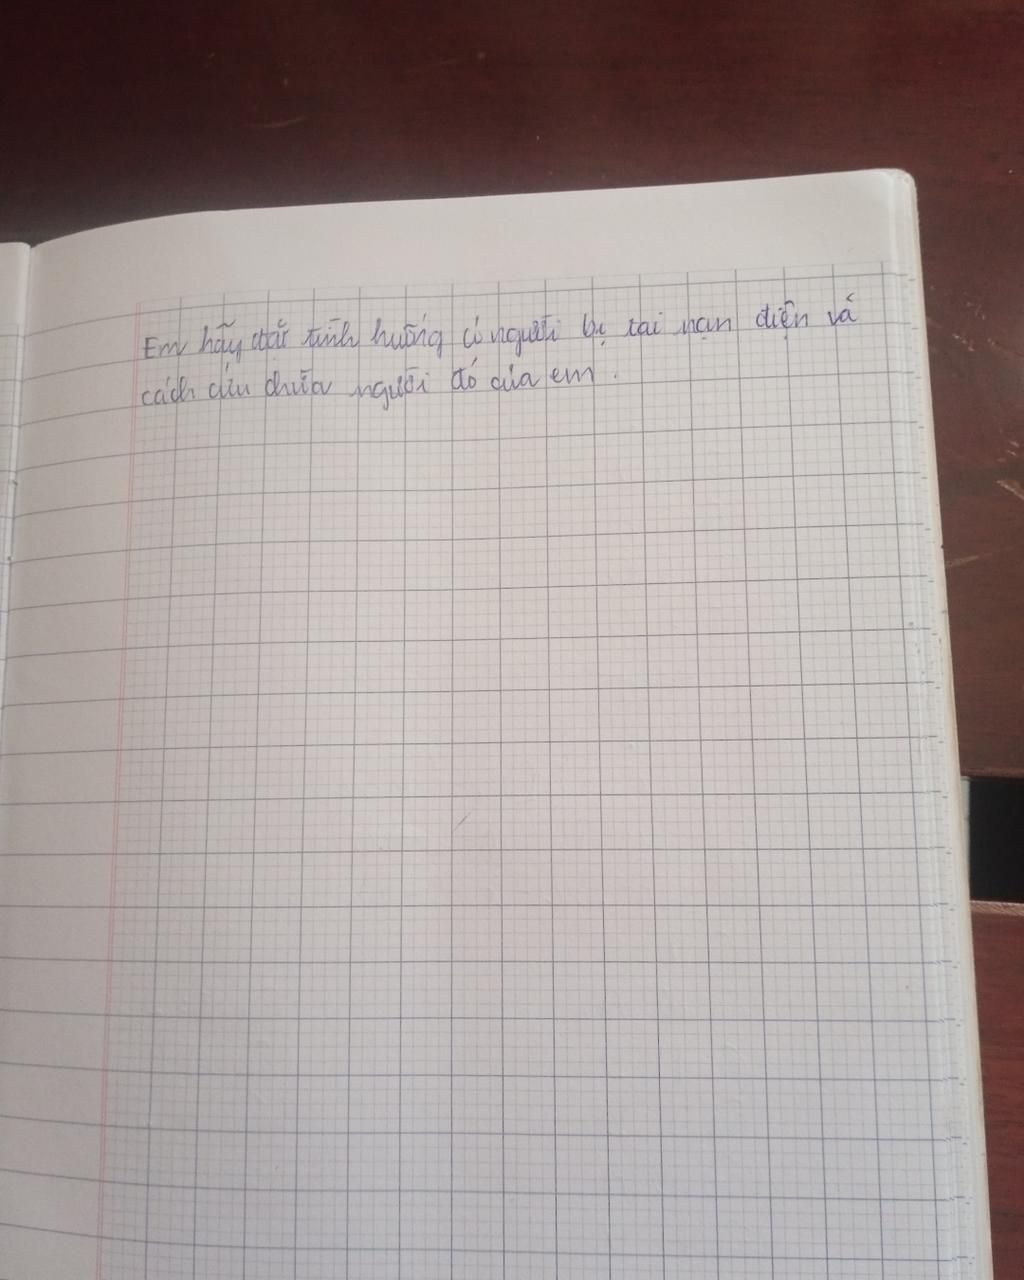 Em hãy đặt tình huống có người bị tai nạn điện và
cách cứu chữa người đó của em .